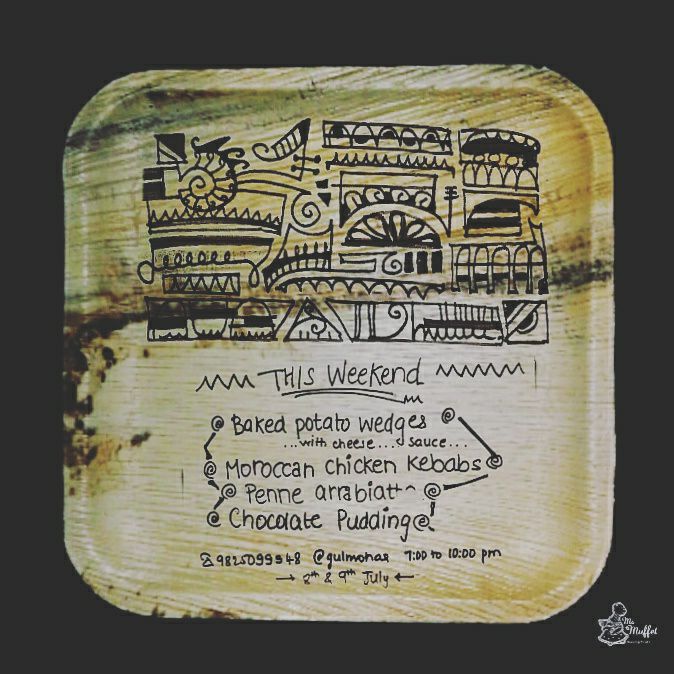 THIS Weekend
Baked potato wedges
...with cheese... sauce...
Moroccan chicken kebabs
Penne arrabiatta
Chocolate Pudding!
9825099548 @gulmohar 7:00 to 10:00 pm
→ 8th & 9th July ←
Ms
Muffet